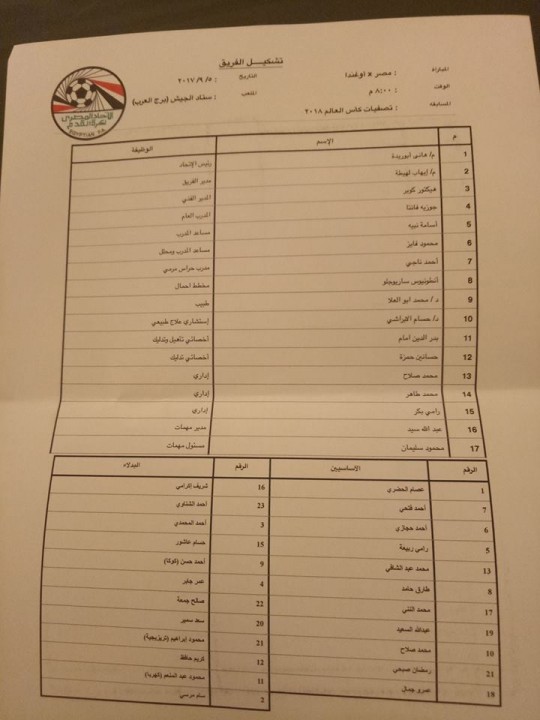 تشكيـــل الفريق
المباراه : مصر x اوغندا
التاريخ : ٢٠١٧/٩/٥
الوقت : ٨:٠٠ م
الملعب : ستاد الجيش (برج العرب)
المسابقه : تصفيات كاس العالم ٢٠١٨
الاتحاد المصرى لكرة القدم
EGYPTIAN F.A
م الإسم الوظيفة
1 م/ هانى أبوريدة رئيس الإتحاد
2 م/ إيهاب لهيطة مدير الفريق
3 هيكتور كوبر المدير الفني
4 جوزيه فانتا المدرب العام
5 أسامة نبيه مساعد المدرب
6 محمود فايز مساعد المدرب ومحلل
7 أحمد ناجي مدرب حراس مرمي
8 أنطونيوس ساريوجلو مخطط احمال
9 د/ محمد ابو العلا طبيب
10 د/ حسام الابراشي إستشاري علاج طبيعي
11 بدر الدين امام أخصائي تأهيل وتدليك
12 حسانين حمزة أخصائي تدليك
13 محمد صلاح إداري
14 محمد طاهر إداري
15 رامي بكر إداري
16 عبد الله سيد مدير مهمات
17 محمود سليمان مسئول مهمات
الرقم الاساسيين الرقم البدلاء
1 عصام الحضري 16 شريف إكرامي
7 أحمد فتحي 23 أحمد الشناوي
6 أحمد حجازي 3 أحمد المحمدي
5 رامي ربيعة 15 حسام عاشور
13 محمد عبد الشافي 9 أحمد حسن (كوكا)
8 طارق حامد 4 عمر جابر
17 محمد النني 22 صالح جمعة
19 عبدالله السعيد 20 سعد سمير
10 محمد صلاح 21 محمود إبراهيم (تريزيجية)
21 رمضان صبحي 12 كريم حافظ
18 عمرو جمال 11 محمود عبد المنعم (كهربا)
2 سام مرسي